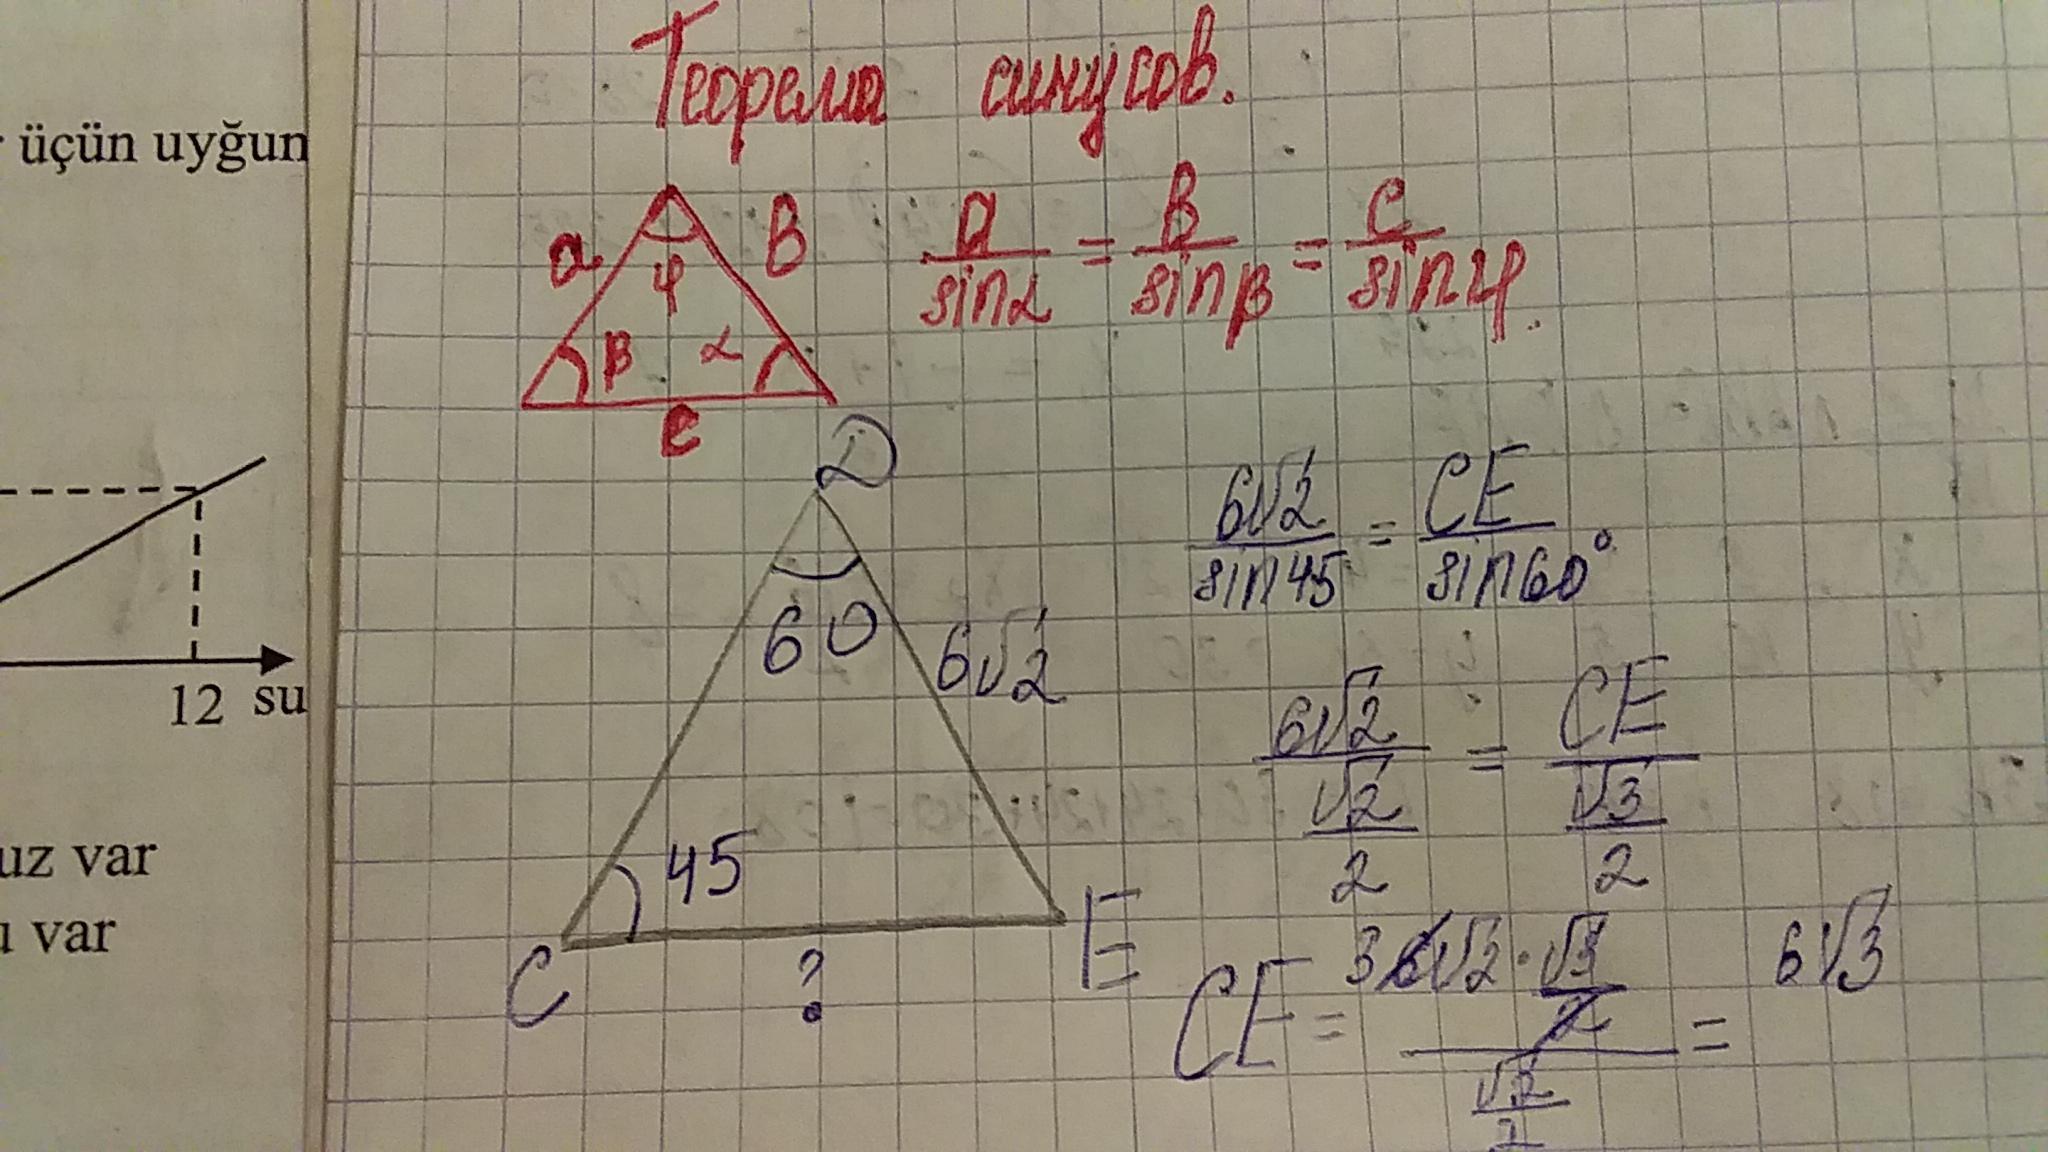 r üçün uyğun
12 su
uz var
var
Теорема синусов.
a B φ β α c
a/sinα = B/sinβ = c/sinφ.
D
60 6√2
45
C ? E
6√2/sin45 = CE/sin60°
6√2/(√2/2) = CE/(√3/2)
CE = (3 6√2 · √3/2)/(√2/2) = 6√3